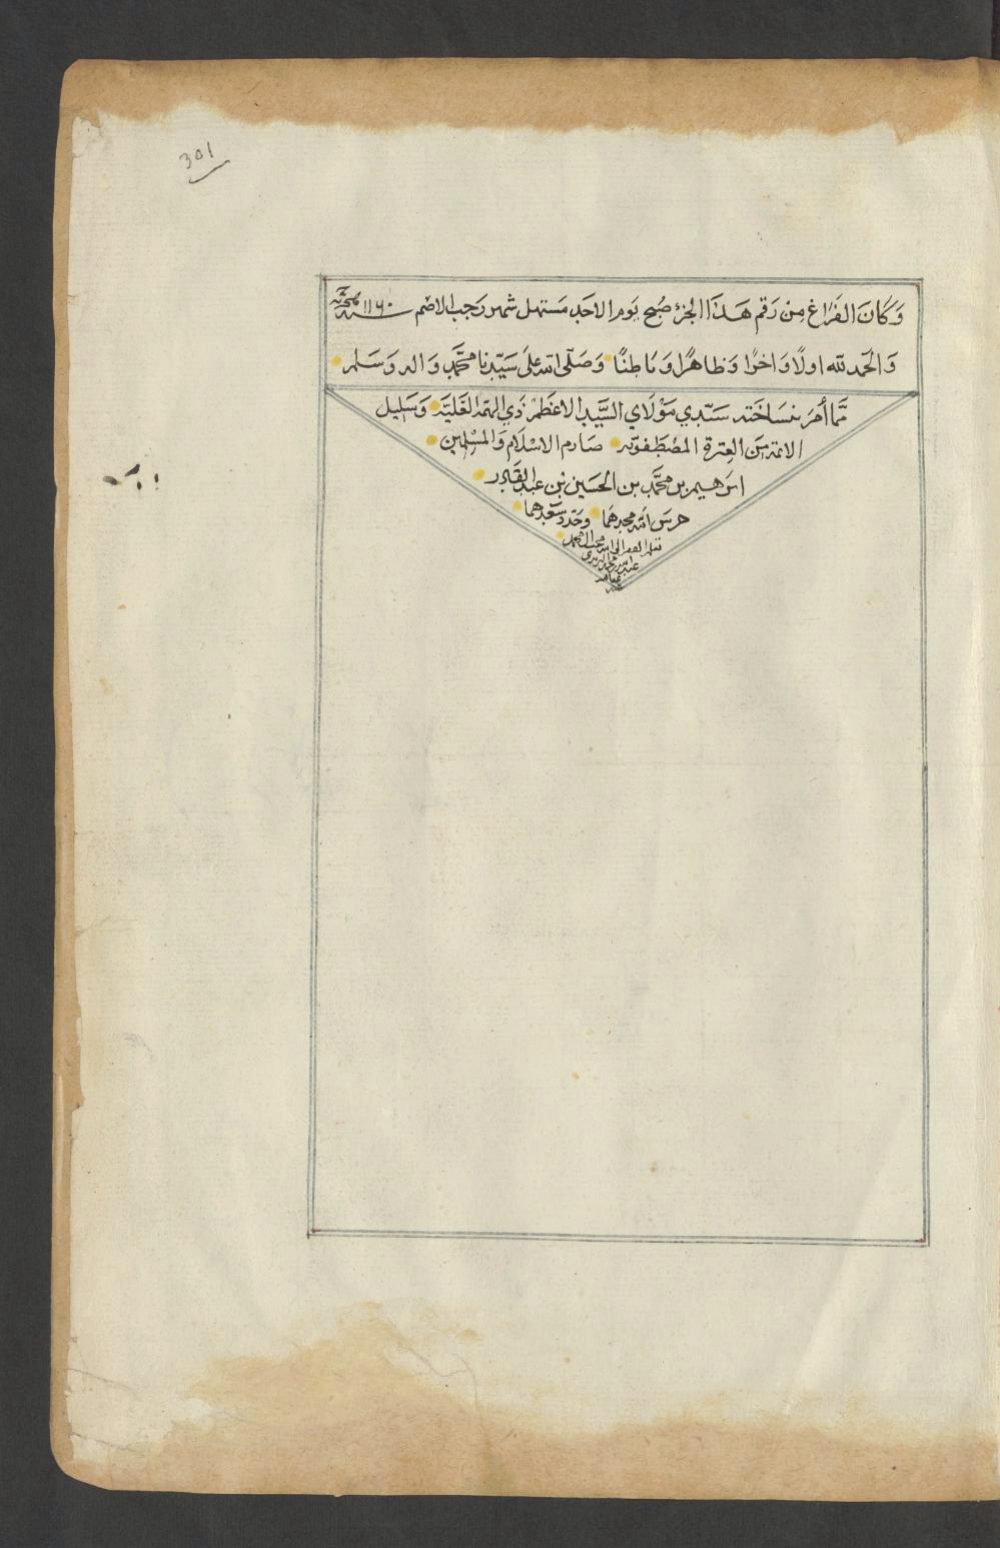 301
وَكَانَ الفَرَاغ مِنْ رَقم هَذَا الجزء صُبح يَوم الاحَد مَستهل شهر رَجب الاصَم سـنـة ١١٦٠
وَالحَمد لله اولًا وَاخرًا وَظاهرًا وَبَاطنًا وَصَلّى الله عَلى سَيّدنا محمّد وَاله وَسَلم
ممّا أمرَ بنسَاخته سَيّدي مَوْلَاي السَّيّد الاعظَم ذي الهمّة العَليّة وَسَليل
الائمة مِنَ العِترة المصْطَفوية صَارم الاسْلام وَالمسْلمين
ابرَهيم بن محمَّد بن الحسَين بن عبد القادر
حرسَ الله مجدهُمَا وَجَدد سَعدهما
بقلم الفقير الى الله